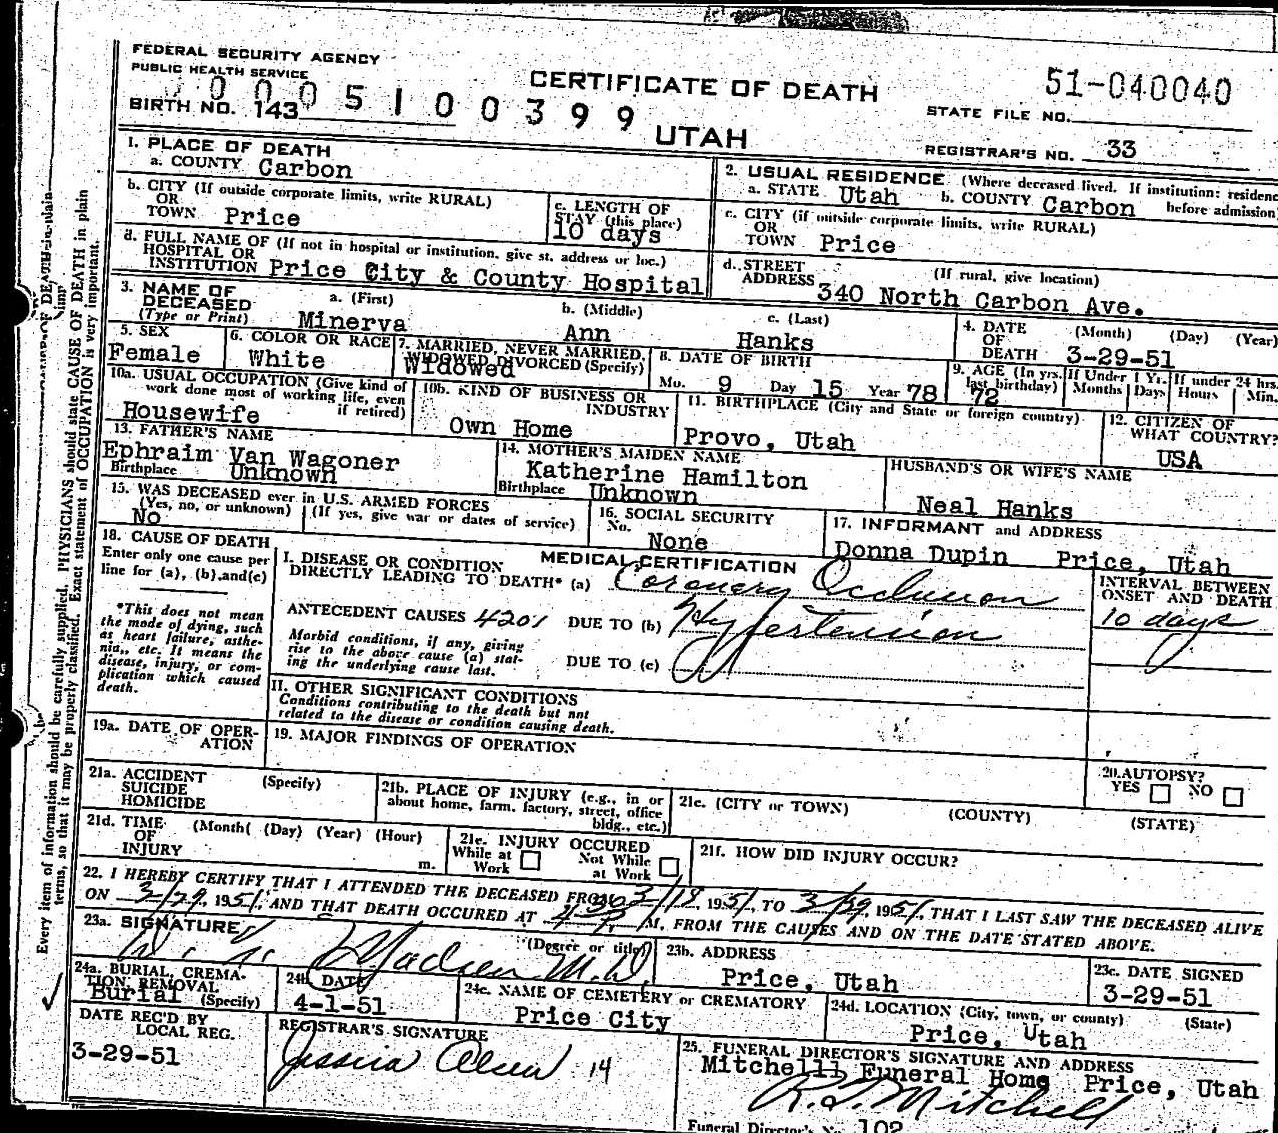 FEDERAL SECURITY AGENCY
PUBLIC HEALTH SERVICE
CERTIFICATE OF DEATH
51-040040
STATE FILE NO.
BIRTH NO. 143
0005100399
UTAH
REGISTRAR'S NO. 33
1. PLACE OF DEATH
a. COUNTY Carbon
2. USUAL RESIDENCE (Where deceased lived. If institution: residence
a. STATE Utah b. COUNTY Carbon before admission
b. CITY (If outside corporate limits, write RURAL)
OR
TOWN Price
c. LENGTH OF
STAY (this place)
10 days
c. CITY (if outside corporate limits, write RURAL)
OR
TOWN Price
d. FULL NAME OF (If not in hospital or institution, give st. address or loc.)
HOSPITAL OR
INSTITUTION Price City & County Hospital
d. STREET (If rural, give location)
ADDRESS 340 North Carbon Ave.
3. NAME OF
DECEASED
(Type or Print)
a. (First) b. (Middle) c. (Last)
Minerva Ann Hanks
4. DATE (Month) (Day) (Year)
OF
DEATH 3-29-51
5. SEX
Female
6. COLOR OR RACE
White
7. MARRIED, NEVER MARRIED,
WIDOWED DIVORCED (Specify)
Widowed
8. DATE OF BIRTH
Mo. 9 Day 15 Year 78
9. AGE (In yrs. last birthday)
72
If Under 1 Yr.
Months Days
If under 24 hrs.
Hours Min.
10a. USUAL OCCUPATION (Give kind of
work done most of working life, even
if retired)
Housewife
10b. KIND OF BUSINESS OR
INDUSTRY
Own Home
11. BIRTHPLACE (City and State or foreign country)
Provo, Utah
12. CITIZEN OF
WHAT COUNTRY?
USA
13. FATHER'S NAME
Ephraim Van Wagoner
Birthplace Unknown
14. MOTHER'S MAIDEN NAME
Katherine Hamilton
Birthplace Unknown
HUSBAND'S OR WIFE'S NAME
Neal Hanks
15. WAS DECEASED ever in U.S. ARMED FORCES
(Yes, no, or unknown) (If yes, give war or dates of service)
No
16. SOCIAL SECURITY
No.
None
17. INFORMANT and ADDRESS
Donna Dupin Price, Utah
18. CAUSE OF DEATH
Enter only one cause per
line for (a), (b), and (c)
*This does not mean
the mode of dying, such
as heart failure, asthe-
nia, etc. It means the
disease, injury, or com-
plication which caused
death.
MEDICAL CERTIFICATION
I. DISEASE OR CONDITION
DIRECTLY LEADING TO DEATH* (a) Coronary Occlusion
INTERVAL BETWEEN
ONSET AND DEATH
10 days
ANTECEDENT CAUSES 4201 DUE TO (b) Hypertension
Morbid conditions, if any, giving
rise to the above cause (a) stat-
ing the underlying cause last.
DUE TO (c)
II. OTHER SIGNIFICANT CONDITIONS
Conditions contributing to the death but not
related to the disease or condition causing death.
19a. DATE OF OPER-
ATION
19. MAJOR FINDINGS OF OPERATION
20. AUTOPSY?
YES NO
21a. ACCIDENT (Specify)
SUICIDE
HOMICIDE
21b. PLACE OF INJURY (e.g., in or
about home, farm, factory, street, office
bldg., etc.)
21c. (CITY or TOWN) (COUNTY) (STATE)
21d. TIME (Month( (Day) (Year) (Hour)
OF
INJURY m.
21e. INJURY OCCURED
While at Work Not While at Work
21f. HOW DID INJURY OCCUR?
22. I HEREBY CERTIFY THAT I ATTENDED THE DECEASED FROM 3/18, 1951, TO 3/29 1951, THAT I LAST SAW THE DECEASED ALIVE
ON 3/29, 1951, AND THAT DEATH OCCURED AT M, FROM THE CAUSES AND ON THE DATE STATED ABOVE.
23a. SIGNATURE (Degree or title)
Madsen M.D.
23b. ADDRESS
Price, Utah
23c. DATE SIGNED
3-29-51
24a. BURIAL, CREMA-
TION, REMOVAL
Burial (Specify)
24b. DATE
4-1-51
24c. NAME OF CEMETERY or CREMATORY
Price City
24d. LOCATION (City, town, or county) (State)
Price, Utah
DATE REC'D BY
LOCAL REG.
3-29-51
REGISTRAR'S SIGNATURE
Jessica Olsen 14
25. FUNERAL DIRECTOR'S SIGNATURE AND ADDRESS
Mitchell Funeral Home Price, Utah
Mitchell
Funeral Director's No. 102
Every item of information should be carefully supplied. PHYSICIANS should state CAUSE OF DEATH in plain
terms, so that it may be properly classified. Exact statement of OCCUPATION is very important.